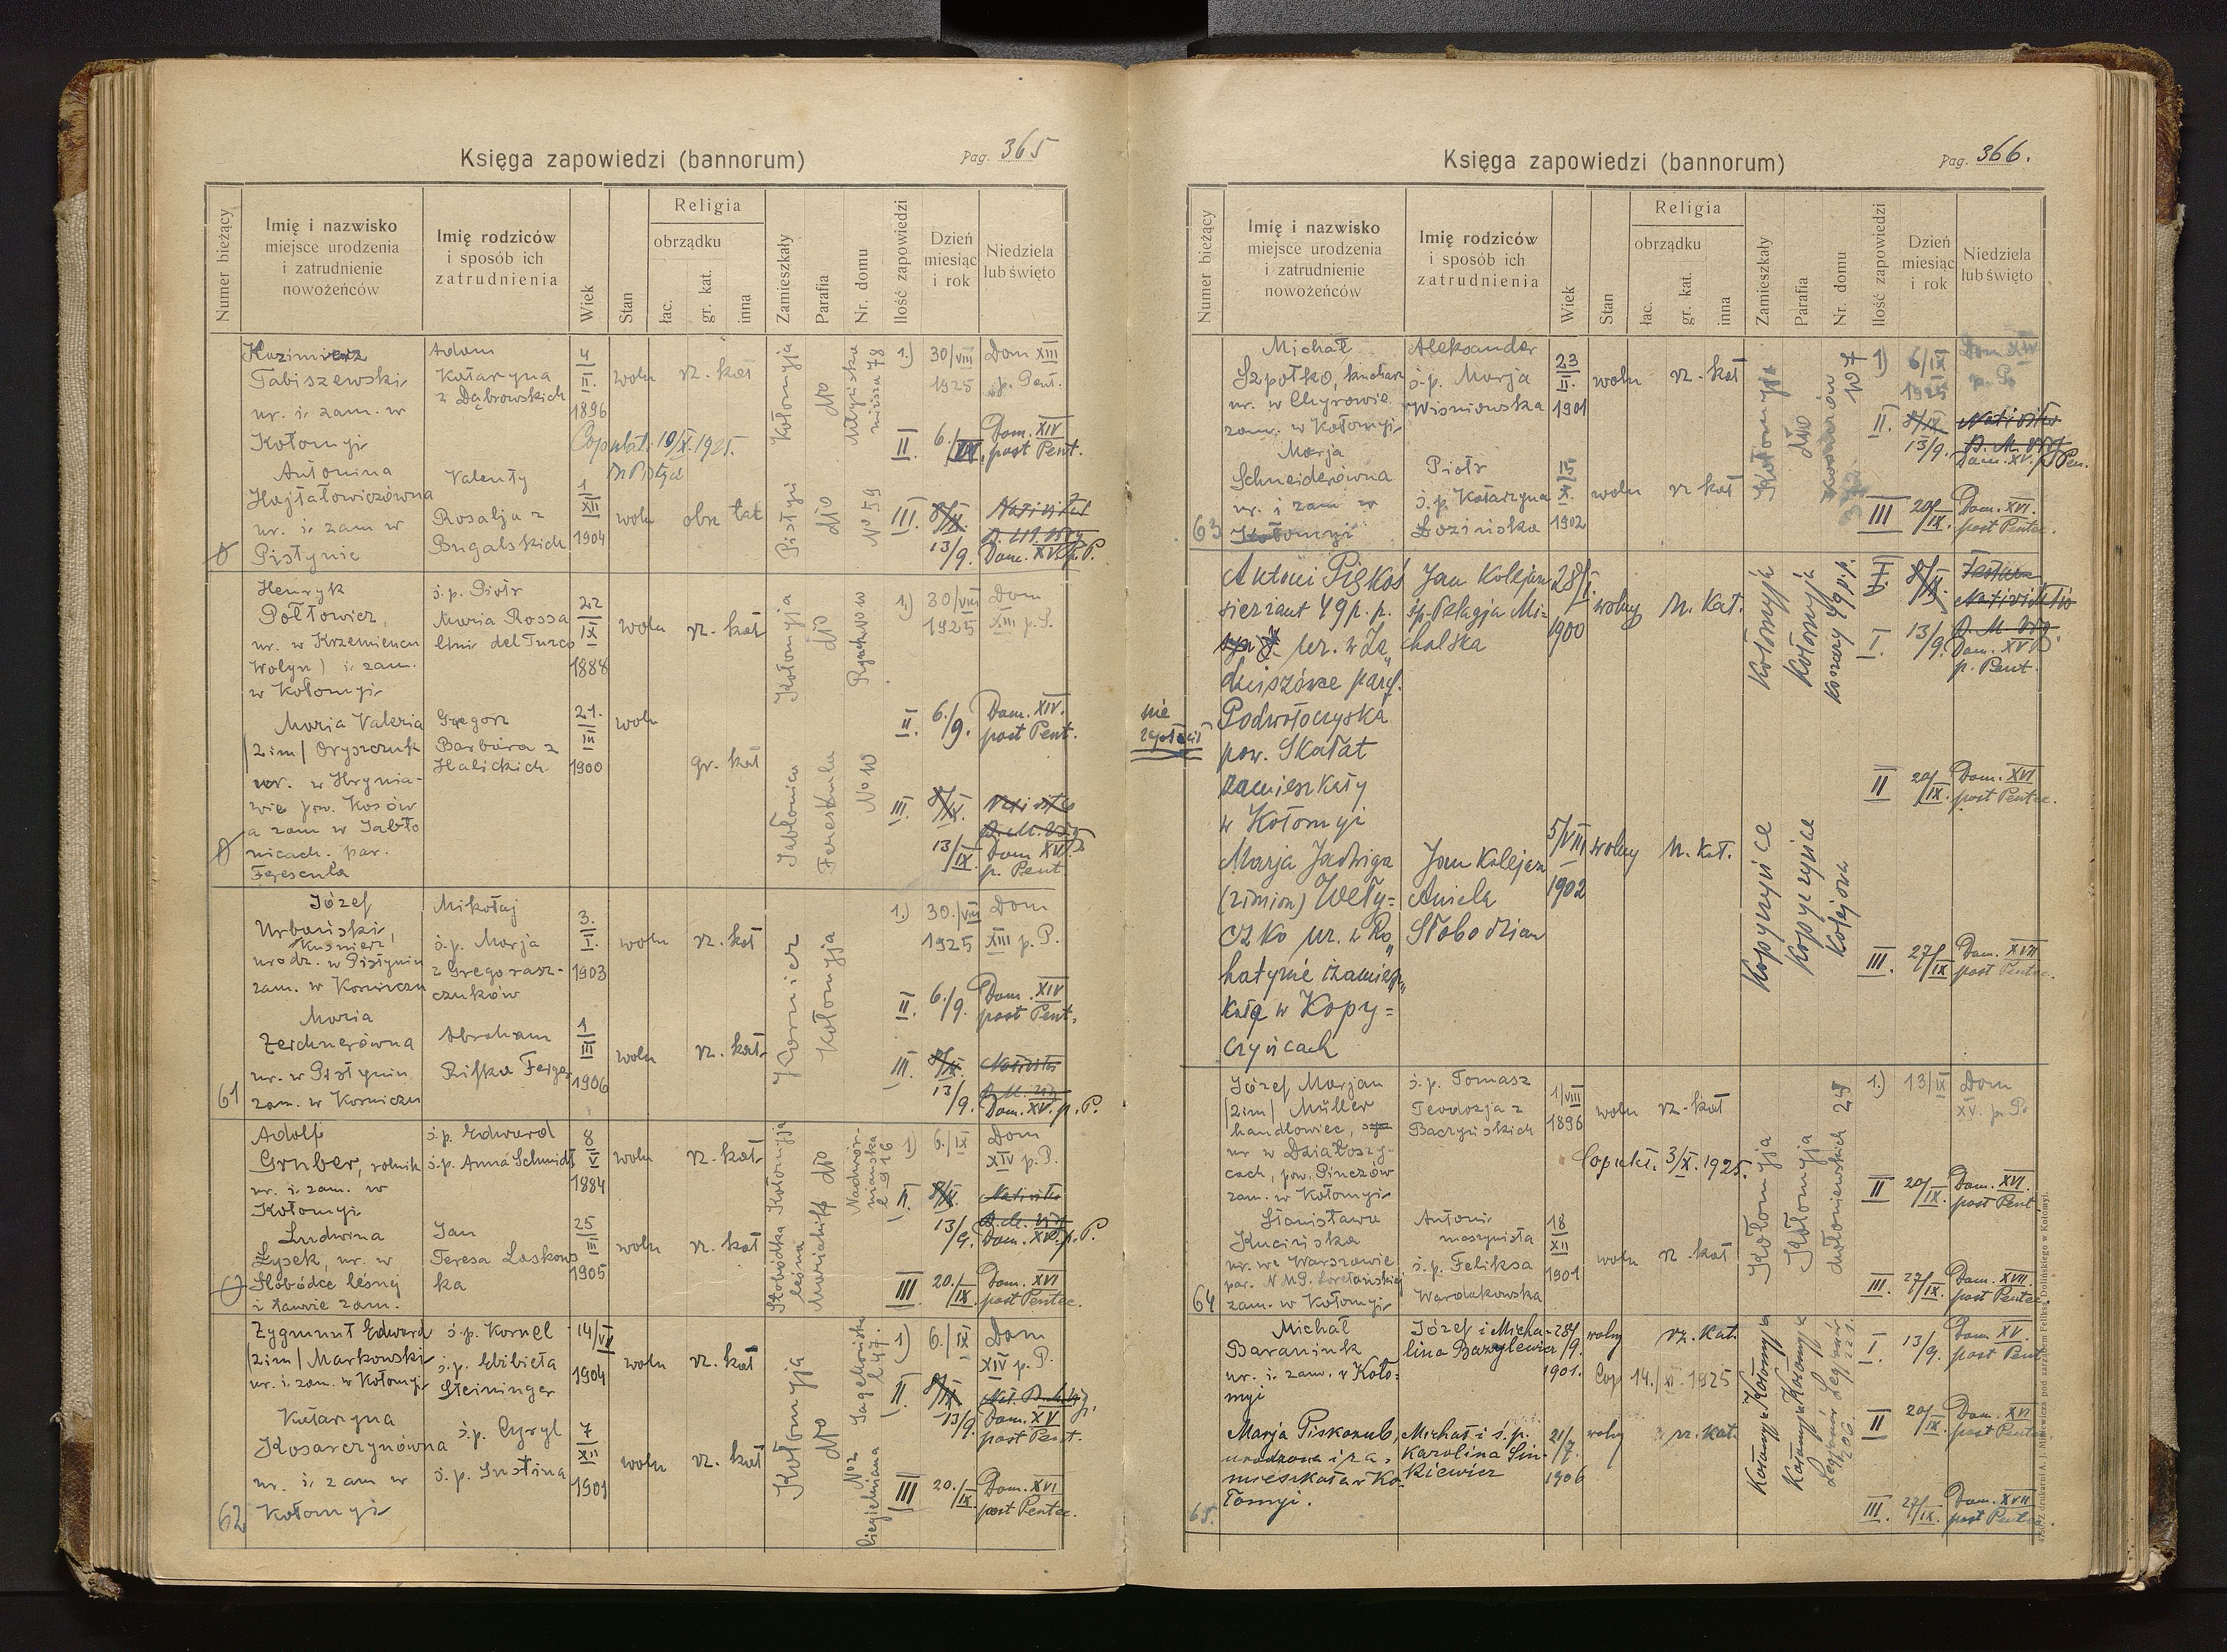 Księga zapowiedzi (bannorum)
Pag. 365
Numer bieżący
Imię i nazwisko
miejsce urodzenia
i zatrudnienie
nowożeńców
Imię rodziców
i sposób ich
zatrudnienia
Wiek
Stan
Religia
obrządku
łac.
gr. kat.
inna
Zamieszkały
Parafia
Nr. domu
Ilość zapowiedzi
Dzień
miesiąc
i rok
Niedziela
lub święto
Kazimierz
Tabiszewski
ur. i. zam. w
Kołomyi
Adam
Katarzyna
z Dąbrowskich
4
1896
woln
rz. kat
Kołomyja
dto
78
1.)
30/VIII
1925
Dom XIII
p. Pent.
Copulat. 10/X 1925.
II
6./IX.
Dom. XIV
post Pent.
Antonina
Hajtałowiczówna
ur. i. zam w
Pistynie
Walenty
Rosalja z
Bugalskich
1
XII
1904
woln
obrz łat
Pistyń
dto
No 59
III.
8/IX.
13/9.
Dom. XV. p. P.
Henryk
Połtowicz,
ur. w Krzemieńcu
Wołyn) i. zam.
w Kołomyi
ś.p. Piotr
Maria Rossa
del Turco
22
IX
1888
woln
rz. kat
Kołomyja
dto
1.)
30/VIII
1925
Dom
XIII p. P.
Maria Valeria
/2 im/ Oryszczuk
ur. w Hrynia-
wie pow. Kosów
a zam w Jabło
nicach. par.
Ferescula
Grzegorz
Barbara z
Halickich
21.
III
1900
woln
gr. kat
Jabłonica
Fereskula
No 10
II.
6./9.
Dom. XIV.
post Pent.
III.
8/IX.
13/IX.
Dom. XV.
p. Pent
61
Józef
Urbański,
Kuśnierz
urodz. w Pistyniu
zam. w Korniczu
Mikołaj
ś.p. Marja
z Gregorasz-
czuków
3.
1903
woln
rz. kat
Kornicz
Kołomyja
1.)
30./VIII
1925
Dom
XIII p. P.
Maria
Zeichnerówna
ur. w Pistyniu
zam. w Korniczu
Abraham
Rifka Feiga
1
III
1906
woln
rz. kat.
II.
6./9.
Dom. XIV
post Pent.
III.
8/IX.
13/9.
Dom. XV. p. P.
Adolf
Gruber, rolnik
ur. i. zam. w
Kołomyi
ś.p. Edward
ś.p. Anna Schmidt
8
VI
1884
woln
rz. kat.
Kołomyja
dto
Nadwór-
niańska
1)
6./IX
Dom
XIV p. P.
II.
8/IX.
13/9.
Dom. XV. p. P.
Ludwina
Łysek, ur. w
Słobódce leśnej
i tamże zam.
Jan
Teresa Laskow
ka
25
III
1905
woln
rz. kat
Słobódka
leśna
Mariahilf
III
20./IX.
Dom. XVI
post Pentec.
62
Zygmunt Edward
/2 im/ Markowski
ur. i. zam. w Kołomyi
ś.p. Kornel
ś.p. Elżbieta
Steininger
14/VII
1904
woln
rz. kat
Kołomyja
dto
Jagiellońska
l. 47.
1)
6./IX
Dom
XIV p. P.
II.
8/IX
13/9.
Dom. XV
post Pent.
Katarzyna
Kosarczynówna
ur. i. zam w
Kołomyi
ś.p. Cyryl
ś.p. Justina
7
XII
1901
woln
rz. kat
No 2
III
20./IX.
Dom. XVI
post Pentec.
Księga zapowiedzi (bannorum)
Pag. 366.
Numer bieżący
Imię i nazwisko
miejsce urodzenia
i zatrudnienie
nowożeńców
Imię rodziców
i sposób ich
zatrudnienia
Wiek
Stan
Religia
obrządku
łac.
gr. kat.
inna
Zamieszkały
Parafia
Nr. domu
Ilość zapowiedzi
Dzień
miesiąc
i rok
Niedziela
lub święto
63
Michał
Szpotko, kucharz
ur. w Chyrowie
zam. w Kołomyi
Aleksander
ś.p. Marja
Wisniowska
23
1901
woln
rz. kat
Kołomyja
dto
107
1)
6/IX
1925
Dom XIV
p. P.
II.
8/IX
13/9.
Dom. XV. p. Pen.
Marja
Schneiderówna
ur. i zam w
Kołomyi
Piotr
ś.p. Katarzyna
Łozińska
15
X.
1902
woln
rz kat
III
20/IX.
Dom. XVI.
post Pentec.
nie
zapłacił
Antoni Piękoś
sierżant 49 p. p.
ur. w Za
dniszówce paraf.
Podwołoczyska
pow. Skałat
zamieszkały
w Kołomyi
Jan Kolejarz
śp. Pelagja Mi-
chalska
28/I.
1900
wolny
rz. kat.
Kołomyja
Kołomyja
Koszary 49 p.p.
8/IX
Nativitatis
I.
13/9.
Dom. XV
p. Pent.
II
20/IX.
Dom. XVI
post Pentec.
Marja Jadwiga
(2 imion) Wely-
czko ur. w Ro
hatynie i zamiesz
kałą w Kopy-
czyńcach
Jan Kolejarz
Aniela
Słobodzian
5/VIII
1902
wolny
rz. kat.
Kopyczyńce
Kopyczyńce
Kolejowa
III.
27/IX
Dom. XVII
post Pentec.
64
Józef Marjan
/2 im/ Müller
handlowiec,
ur w Działoszy-
cach, pow. Pinczów
zam. w Kołomyi
ś.p. Tomasz
Teodozja z
Baczyńskich
1/VIII
1896
woln
rz. kat
Kołomyja
Kołomyja
25
1.)
13/IX
Dom
XV. p. P.
Copulat. 3/X. 1925.
II
20/IX.
Dom. XVI.
post Pent
Stanisława
Kucińska
ur. we Warszawie
par. N. M. P. Loretańskiej
zam. w Kołomyi
Antoni
maszynista
ś.p. Feliksa
Wardakowska
18
XII
1901
woln
rz kat
III.
27/IX.
Dom. XVII.
post Pentec
65.
Michał
Baraniuk
ur. i. zam. w Koło-
myi
Józef i Micha-
lina Bazylewicz
28/9.
1901.
wolny
rz. kat.
Kołomyja
Kołomyja
I.
13/9.
Dom. XV.
post Pent
Cop. 14./XI 1925
II
20/IX.
Dom. XVI
post Pentec
Marja Piskozub,
urodzona i za-
mieszkała w Ko-
łomyi.
Michał i ś.p.
Karolina Sin-
kiewicz
21/7.
1906
wolny
rz. kat.
Kołomyja
Kołomyja
Legjonów
206.
III.
27/IX.
Dom. XVII
post Pentec.